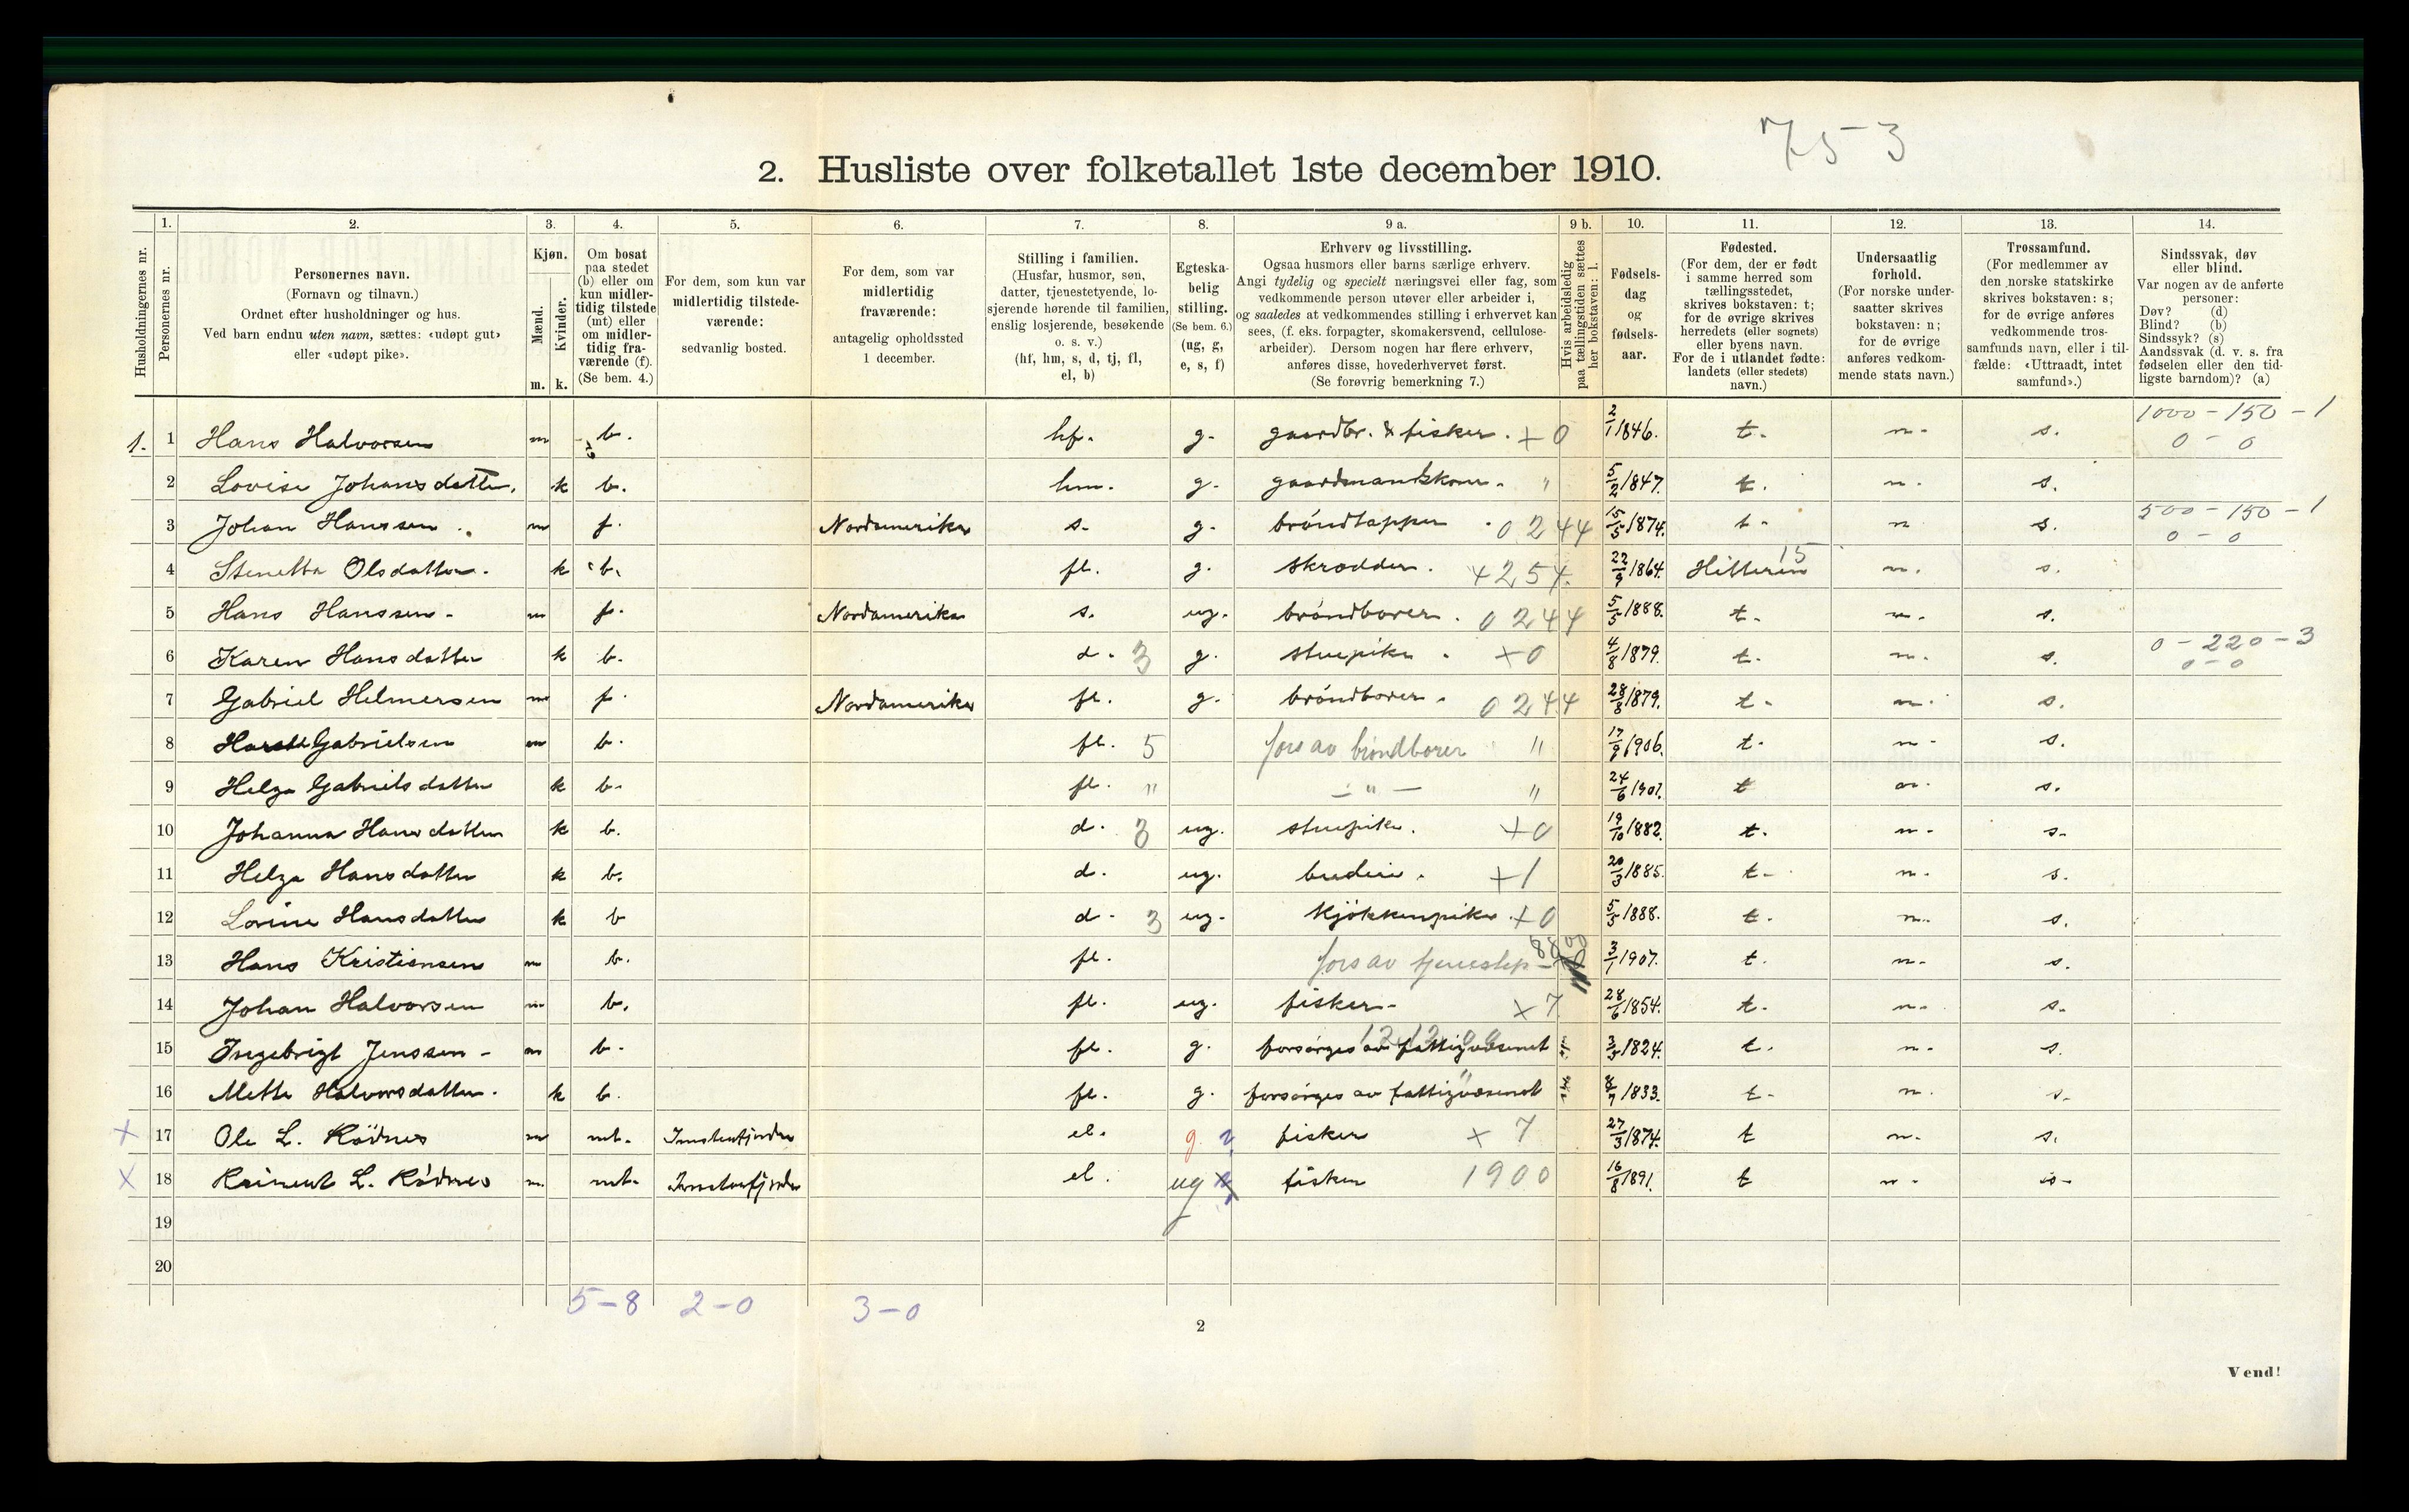 75-3
2. Husliste over folketallet 1ste december 1910.
1. 2. 3. 4. 5. 6. 7. 8. 9 a. 9 b. 10. 11. 12. 13. 14.
Husholdningernes nr.
Personernes nr.
Personernes navn.
(Fornavn og tilnavn.)
Ordnet efter husholdninger og hus.
Ved barn endnu uten navn, sættes: «udøpt gut»
eller «udøpt pike».
Kjøn.
Mænd.
Kvinder.
m. k.
Om bosat
paa stedet
(b) eller om
kun midler-
tidig tilstede
(mt) eller
om midler-
tidig fra-
værende (f).
(Se bem. 4.)
For dem, som kun var
midlertidig tilstede-
værende:
sedvanlig bosted.
For dem, som var
midlertidig
fraværende:
antagelig opholdssted
1 december.
Stilling i familien.
(Husfar, husmor, søn,
datter, tjenestetyende, lo-
sjerende hørende til familien,
enslig losjerende, besøkende
o. s. v.)
(hf, hm, s, d, tj, fl,
el, b)
Egteska-
belig
stilling.
(Se bem. 6.)
(ug, g,
e, s, f)
Erhverv og livsstilling.
Ogsaa husmors eller barns særlige erhverv.
Angi tydelig og specielt næringsvei eller fag, som
vedkommende person utøver eller arbeider i,
og saaledes at vedkommendes stilling i erhvervet kan
sees, (f. eks. forpagter, skomakersvend, cellulose-
arbeider). Dersom nogen har flere erhverv,
anføres disse, hovederhvervet først.
(Se forøvrig bemerkning 7.)
Hvis arbeidsledig
paa tællingstiden sættes
her bokstaven: l.
Fødsels-
dag
og
fødsels-
aar.
Fødested.
(For dem, der er født
i samme herred som
tællingsstedet,
skrives bokstaven: t;
for de øvrige skrives
herredets (eller sognets)
eller byens navn.
For de i utlandet fødte:
landets (eller stedets)
navn.)
Undersaatlig
forhold.
(For norske under-
saatter skrives
bokstaven: n;
for de øvrige
anføres vedkom-
mende stats navn.)
Trossamfund.
(For medlemmer av
den norske statskirke
skrives bokstaven: s;
for de øvrige anføres
vedkommende tros-
samfunds navn, eller i til-
fælde: «Uttraadt, intet
samfund».)
Sindssvak, døv
eller blind.
Var nogen av de anførte
personer:
Døv? (d)
Blind? (b)
Sindssyk? (s)
Aandssvak (d. v. s. fra
fødselen eller den tid-
ligste barndom)? (a)
1. 1 Hans Halvorsen m b. hf. g. gaardbr. & fisker. +0 2/1 1846. t. n. s. 1000-150-1 0-0
2 Lovise Johansdatter. k b. hm. g. gaardmandskone. " 5/2 1847. t. n. s.
3 Johan Hanssen. m f. Nordamerika s. g. bröndtapper 0244 15/5 1874. t. n s. 500-150-1 0-0
4 Stenetta Olsdatter. k b. fl. g. skrædder. +254. 22/9 1864. Hitteren 15 n. s.
5 Hans Hanssen. m f. Nordamerika s. ug. bröndborer. 0244 5/5 1888. t. n. s.
6 Karen Hansdatter k b. d. 3 g. stuepike. +0 4/8 1879. t. n. s. 0-220-3 0-0
7 Gabriel Helmersen m f. Nordamerika fl. g. bröndborer. 0244 28/8 1879. t. n. s.
8 Gabrielsen m b. fl. 5 fors av brøndborer " 17/9 1906. t. n. s.
9 Helga Gabrielsdatter k b. fl. " - " - " 24/6 1907. t n. s.
10 Johanna Hansdatter k b. d. 3 ug. stuepike. +0 19/10 1882. t. n. s.
11 Helga Hansdatter k b. d. ug. budeie. +1 20/3 1885. t. n. s.
12 Lovise Hansdatter k b d. 3 ug. kjökkenpike. +0 5/5 1888. t. n. s.
13 Hans Kristiansen m b. fl. fors av tjenestep 3/1 1907. t. n. s.
14 Johan Halvorsen m b. fl. ug. fisker. +7 28/6 1854. t. n. s.
15 Ingebrigt Jenssen m b. fl. g. forsörges av fattigvæsenet 1824. t. n. s.
16 Mette Halvorsdatter. k b. fl. g. forsörges av fattigvæsenet 1833. t. n. s.
x 17 Ole L. Rödnes m mt. el. g. 2 fisker x 7 27/3 1874. t n. s.
x 18 Reinert L. Rödnes m. mt. el. ug fisker 1900 16/8 1891. t n. s.
19
20
5-8 2-0 3-0
2
Vend!